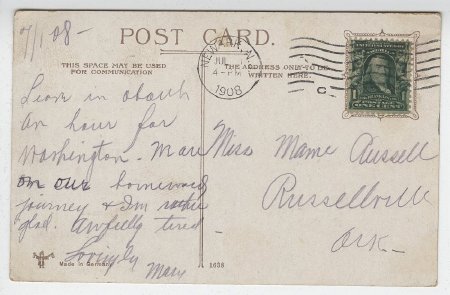 7/1 08-
POST CARD.
THIS SPACE MAY BE USED
FOR COMMUNICATION
THE ADDRESS ONLY TO BE
WRITTEN HERE.
NEWARK, N.
4-PM
1908
ONE CENT
Leave in about
an hour for
Washington.
on our homeward
journey & I'm rather
glad. Awfully tired
Lovingly
Mary
Miss Mame Russell
Russellville
Ark-
Made in Germany
A 1638